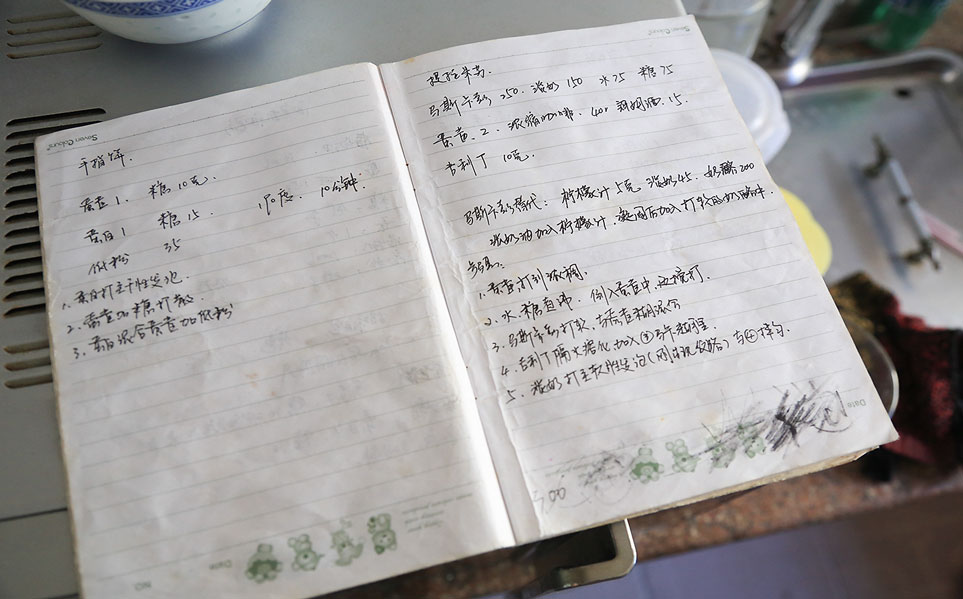 手指饼.
蛋黄1. 糖10克.
蛋白1 糖15. 190度. 10分钟.
低粉 35
1. 蛋白打至干性发泡
2. 蛋黄加糖打散.
3. 蛋白混合蛋黄加低粉
提拉米苏.
马斯卡彭 250. 淡奶 150 水75 糖75
蛋黄. 2. 浓缩咖啡. 40. 朗姆酒. 15.
吉利丁 10克.
马斯卡彭替代: 柠檬汁 5克 淡奶45. 奶酪200
淡奶油加入柠檬汁. 凝固后加入打软的奶酪中.
步骤:
1. 蛋黄打到浓稠.
2. 水. 糖煮沸. 倒入蛋黄中. 边搅打.
3. 马斯卡彭打软. 与蛋黄糊混合
4. 吉利丁隔水溶化加入③
5. 淡奶打至软性发泡(刚出现纹路) 与④拌匀.
Seven Colours
Seven Colours
Date
Date
NO